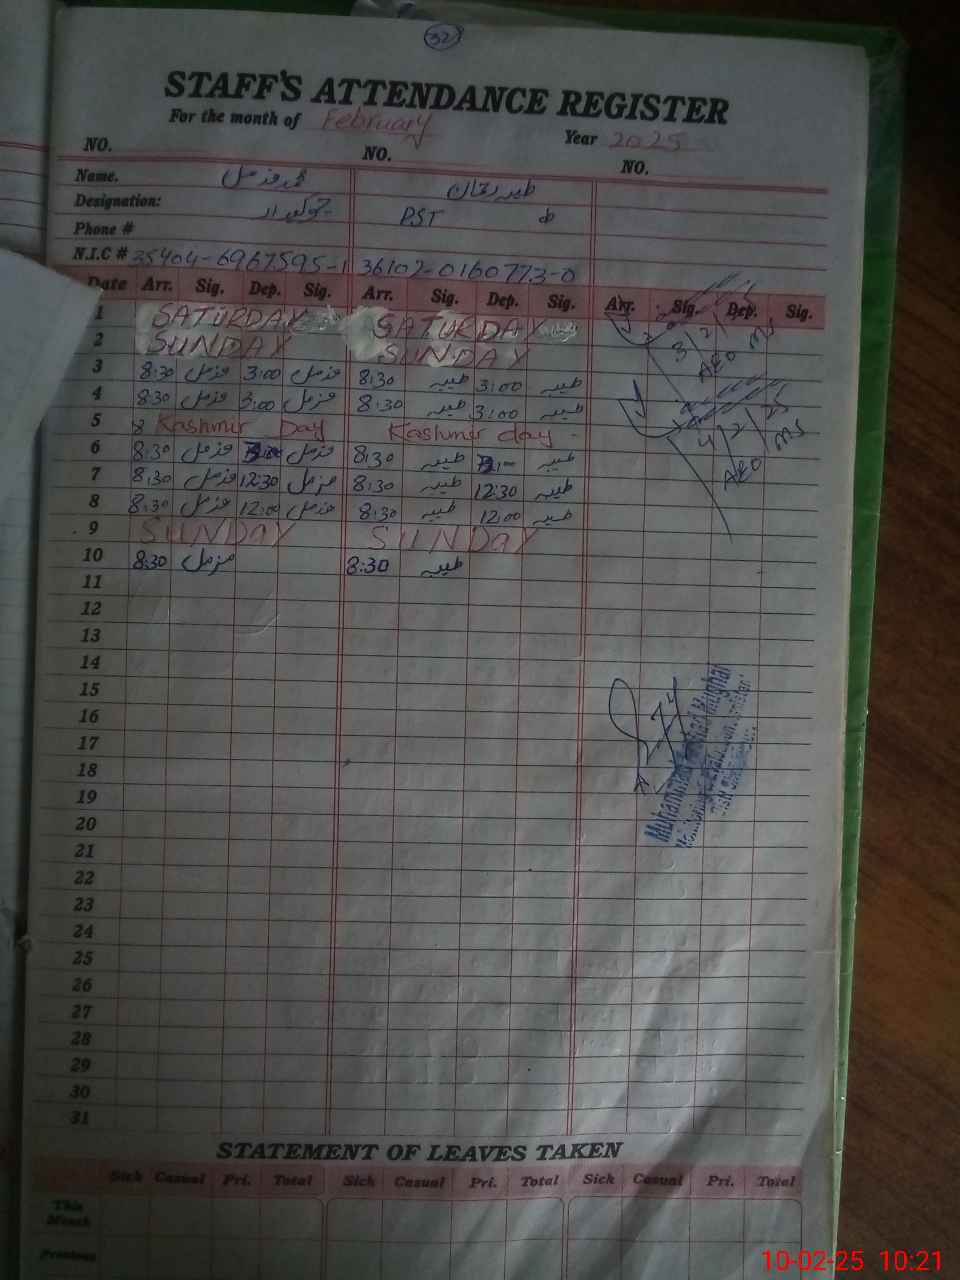 32
STAFF'S ATTENDANCE REGISTER
For the month of February Year 2025
NO. NO. NO.
Name. محمد مزمل طیبہ
Designation: چوکیدار PST
Phone #
N.I.C # 35404-6967595-1 36102-0160773-0
Date Arr. Sig. Dep. Sig. Arr. Sig. Dep. Sig. Arr. Sig. Dep. Sig.
1 SATURDAY SATURDAY
2 SUNDAY SUNDAY
3 8:30 مزمل 3:00 مزمل 8:30 طیبہ 3:00 طیبہ
4 8:30 مزمل 3:00 مزمل 8:30 طیبہ 3:00 طیبہ
5 Kashmir Day Kashmir day
6 8:30 مزمل مزمل 8:30 طیبہ طیبہ
7 8:30 مزمل 12:30 مزمل 8:30 طیبہ 12:30 طیبہ
8 8:30 مزمل 12:00 مزمل 8:30 طیبہ 12:00 طیبہ
9 SUNDAY SUNDAY
10 8:30 مزمل 8:30 طیبہ
11
12
13
14
15
16
17
18
19
20
21
22
23
24
25
26
27
28
29
30
31
3/2
AEO
4/2/25
AEO
Muhammad Mughal
STATEMENT OF LEAVES TAKEN
Sick Casual Pri. Total Sick Casual Pri. Total Sick Casual Pri. Total
This Month
Previous
10-02-25 10:21